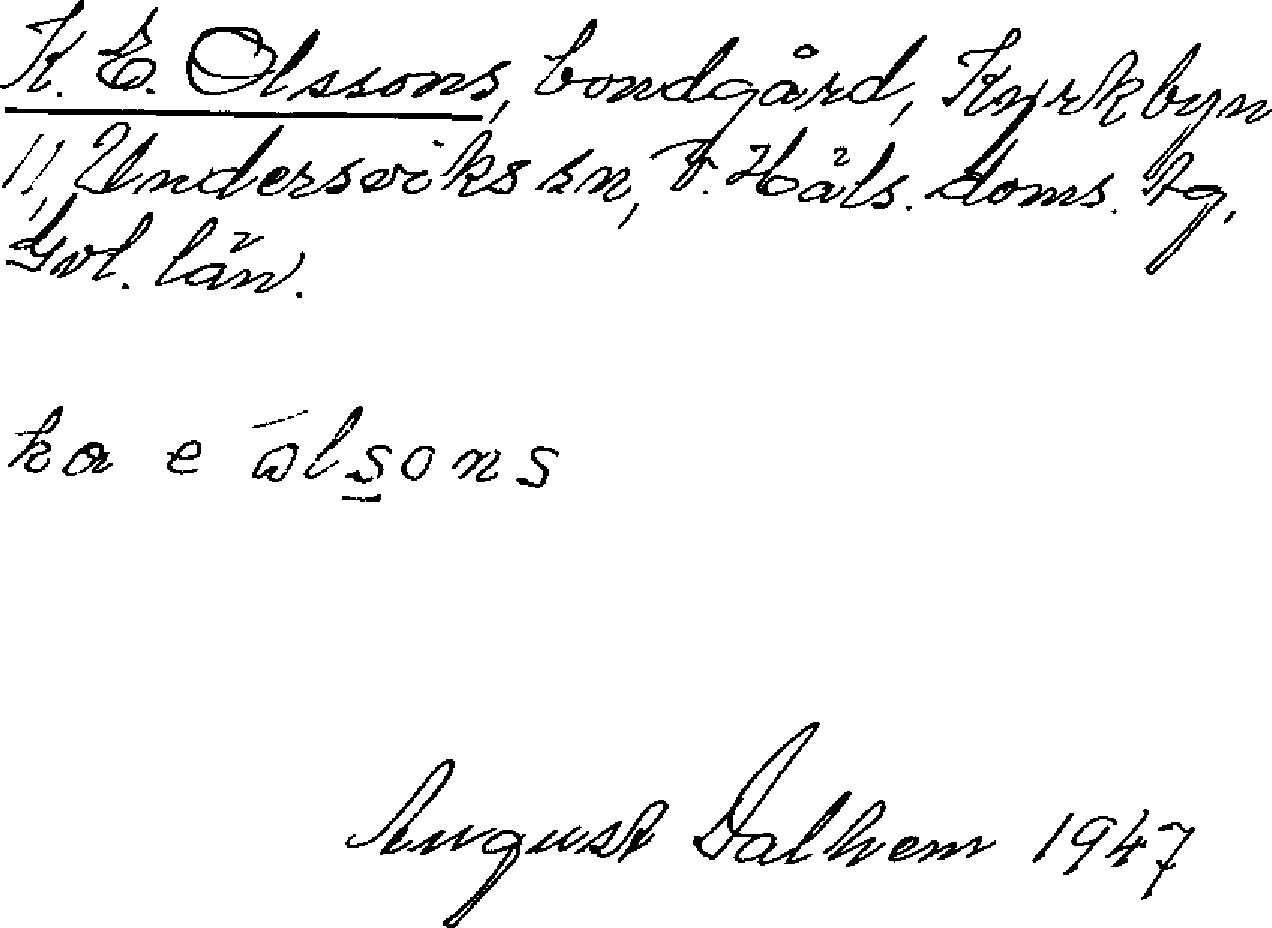 K. E. Olssons, bondgård, Kyrkbyn
11, Undersviks sn, V. Häls. doms. tg,
Gvl. län.
ka e ω̄lsons
August Dalhem 1947